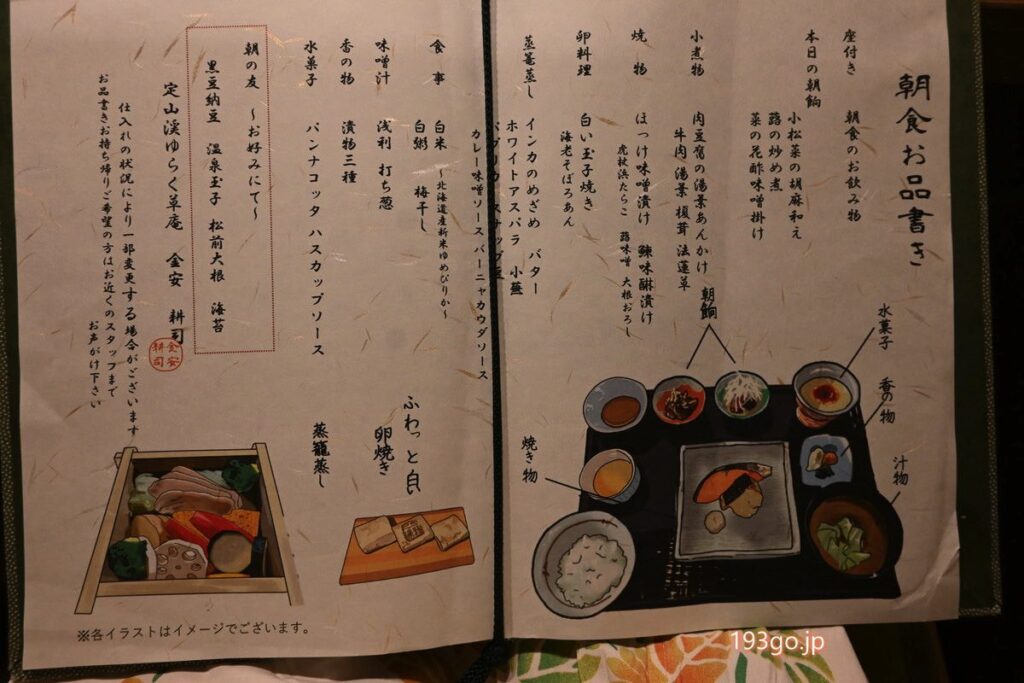 朝食お品書き
座付き　朝食のお飲み物
本日の朝餉
小松菜の胡麻和え
蕗の炒め煮
菜の花酢味噌掛け
小煮物　肉豆腐の湯葉あんかけ
牛肉　湯葉　榎茸　法蓮草
焼物　ほっけ味噌漬け　鰊味醂漬け
虎杖浜たらこ　蕗味噌　大根おろし
卵料理　白い玉子焼き
海老そぼろあん
蒸篭蒸し　インカのめざめ　バター
ホワイトアスパラ　小蕪
パプリカ　スナップ豆
カレー味噌ソース　バーニャカウダソース
食事　白米　～北海道産新米ゆめぴりか～
白粥　梅干し
味噌汁　浅利　打ち葱
香の物　漬物三種
水菓子　パンナコッタハスカップソース
朝の友　～お好みにて～
黒豆納豆　温泉玉子　松前大根　海苔
定山渓ゆらく草庵　金安　耕司
金安耕司
仕入れの状況により一部変更する場合がございます
お品書きお持ち帰りご希望の方はお近くのスタッフまで
お声がけ下さい
朝餉
水菓子
香の物
汁物
焼き物
ふわっと良
卵焼き
蒸籠蒸し
※各イラストはイメージでございます。
193go.jp